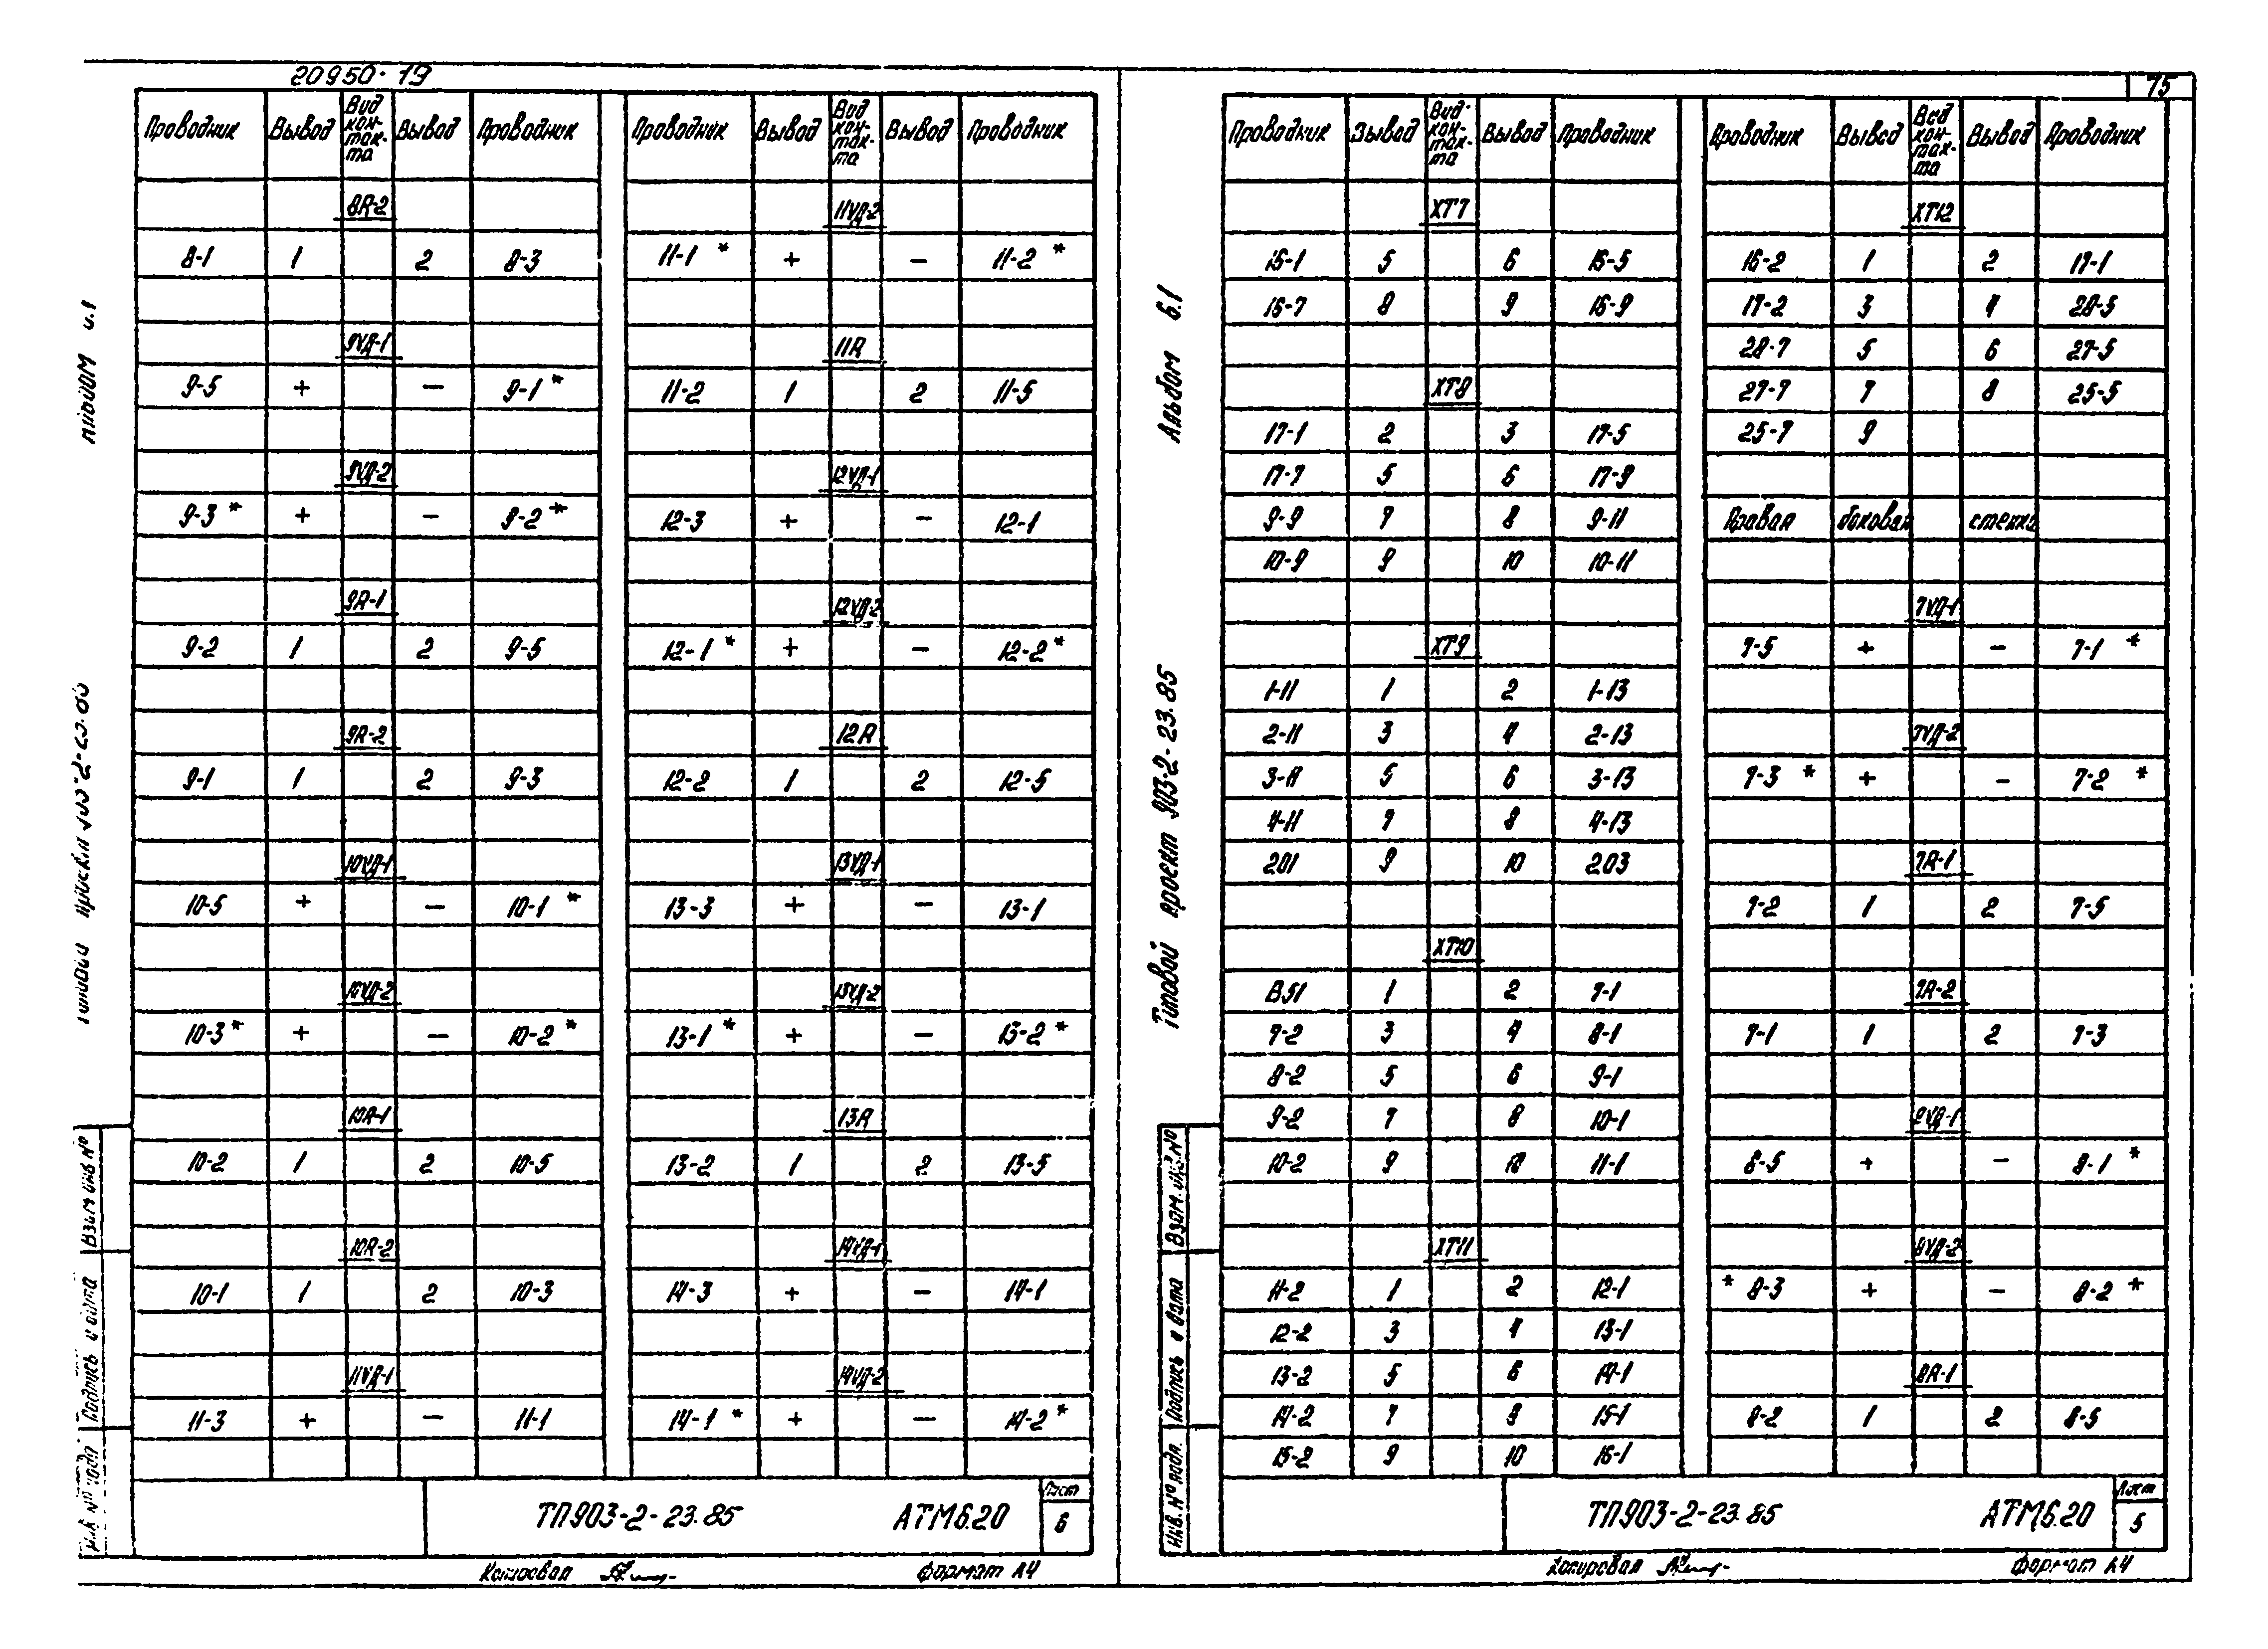 20950-13
Проводник Вывод Вид кон-так-та Вывод Проводник
8R-2
8-1 1 2 8-3
9VД-1
9-5 + − 9-1 *
9VД-2
9-3 * + − 9-2 *
9R-1
9-2 1 2 9-5
9R-2
9-1 1 2 9-3
10VД-1
10-5 + − 10-1 *
10VД-2
10-3 * + − 10-2 *
10R-1
10-2 1 2 10-5
10R-2
10-1 1 2 10-3
11VД-1
11-3 + − 11-1
Проводник Вывод Вид кон-так-та Вывод Проводник
11VД-2
11-1 * + − 11-2 *
11R
11-2 1 2 11-5
12VД-1
12-3 + − 12-1
12VД-2
12-1 * + − 12-2 *
12R
12-2 1 2 12-5
13VД-1
13-3 + − 13-1
13VД-2
13-1 * + − 13-2 *
13R
13-2 1 2 13-5
14VД-1
14-3 + − 14-1
14VД-2
14-1 * + − 14-2 *
Взам инв №
Подпись и дата
ТП903-2-23.85 АТМ6.20
Лист
6
Копировал
Формат А4
75
Альбом 6.1
Типовой проект 903-2-23.85
Проводник Вывод Вид кон-так-та Вывод Проводник
XT7
15-1 5 6 15-5
15-7 8 9 15-9
XT8
17-1 2 3 17-5
17-7 5 6 17-9
9-9 7 8 9-11
10-9 9 10 10-11
XT9
1-11 1 2 1-13
2-11 3 4 2-13
3-11 5 6 3-13
4-11 7 8 4-13
201 9 10 203
XT10
B51 1 2 7-1
7-2 3 4 8-1
8-2 5 6 9-1
9-2 7 8 10-1
10-2 9 10 11-1
XT11
11-2 1 2 12-1
12-2 3 4 13-1
13-2 5 6 14-1
14-2 7 8 15-1
15-2 9 10 16-1
Проводник Вывод Вид кон-так-та Вывод Проводник
XT12
16-2 1 2 17-1
17-2 3 4 28-5
28-7 5 6 27-5
27-7 7 8 25-5
25-7 9
Правая боковая стенка
7VД-1
7-5 + − 7-1 *
7VД-2
7-3 * + − 7-2 *
7R-1
7-2 1 2 7-5
7R-2
7-1 1 2 7-3
8VД-1
8-5 + − 8-1 *
8VД-2
* 8-3 + − 8-2 *
8R-1
8-2 1 2 8-5
Взам. инв. №
Подпись и дата
Инв. № подл.
ТП903-2-23.85 АТМ6.20
Лист
5
Копировал
Формат А4